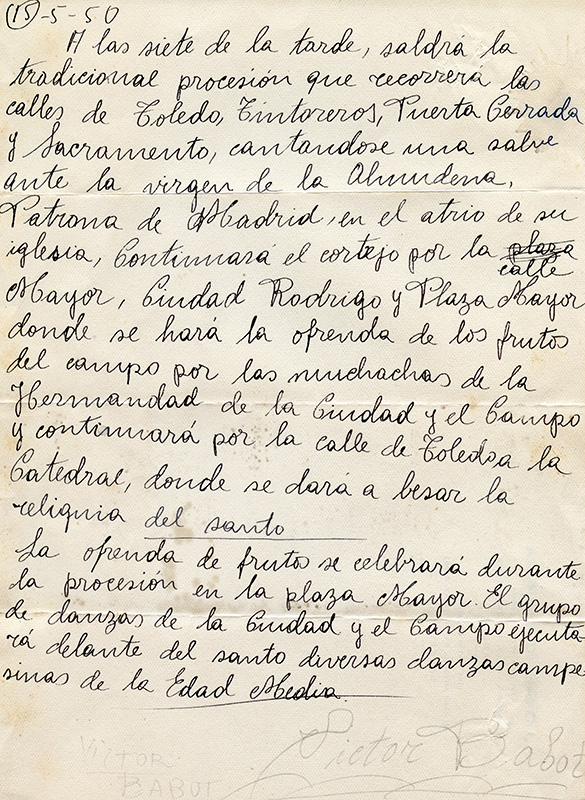 15-5-50
A las siete de la tarde, saldrá la
tradicional procesión que recorrerá las
calles de Toledo, Tintoreros, Puerta Cerrada
y Sacramento, cantandose una salve
ante la virgen de la Almudena,
Patrona de Madrid, en el atrio de su
iglesia, Continuará el cortejo por la plaza
calle
Mayor, Ciudad Rodrigo y Plaza Mayor
donde se hará la ofrenda de los frutos
del campo por las muchachas de la
Hermandad de la Ciudad y el Campo
y continuará por la calle de Toledo a la
Catedral, donde se dará a besar la
reliquia del santo
La ofrenda de frutos se celebrará durante
la procesión en la plaza Mayor. El grupo
de danzas de la Ciudad y el Campo ejecuta-
rá delante del santo diversas danzas campe-
sinas de la Edad Media
Victor Babot
VICTOR
BABOT